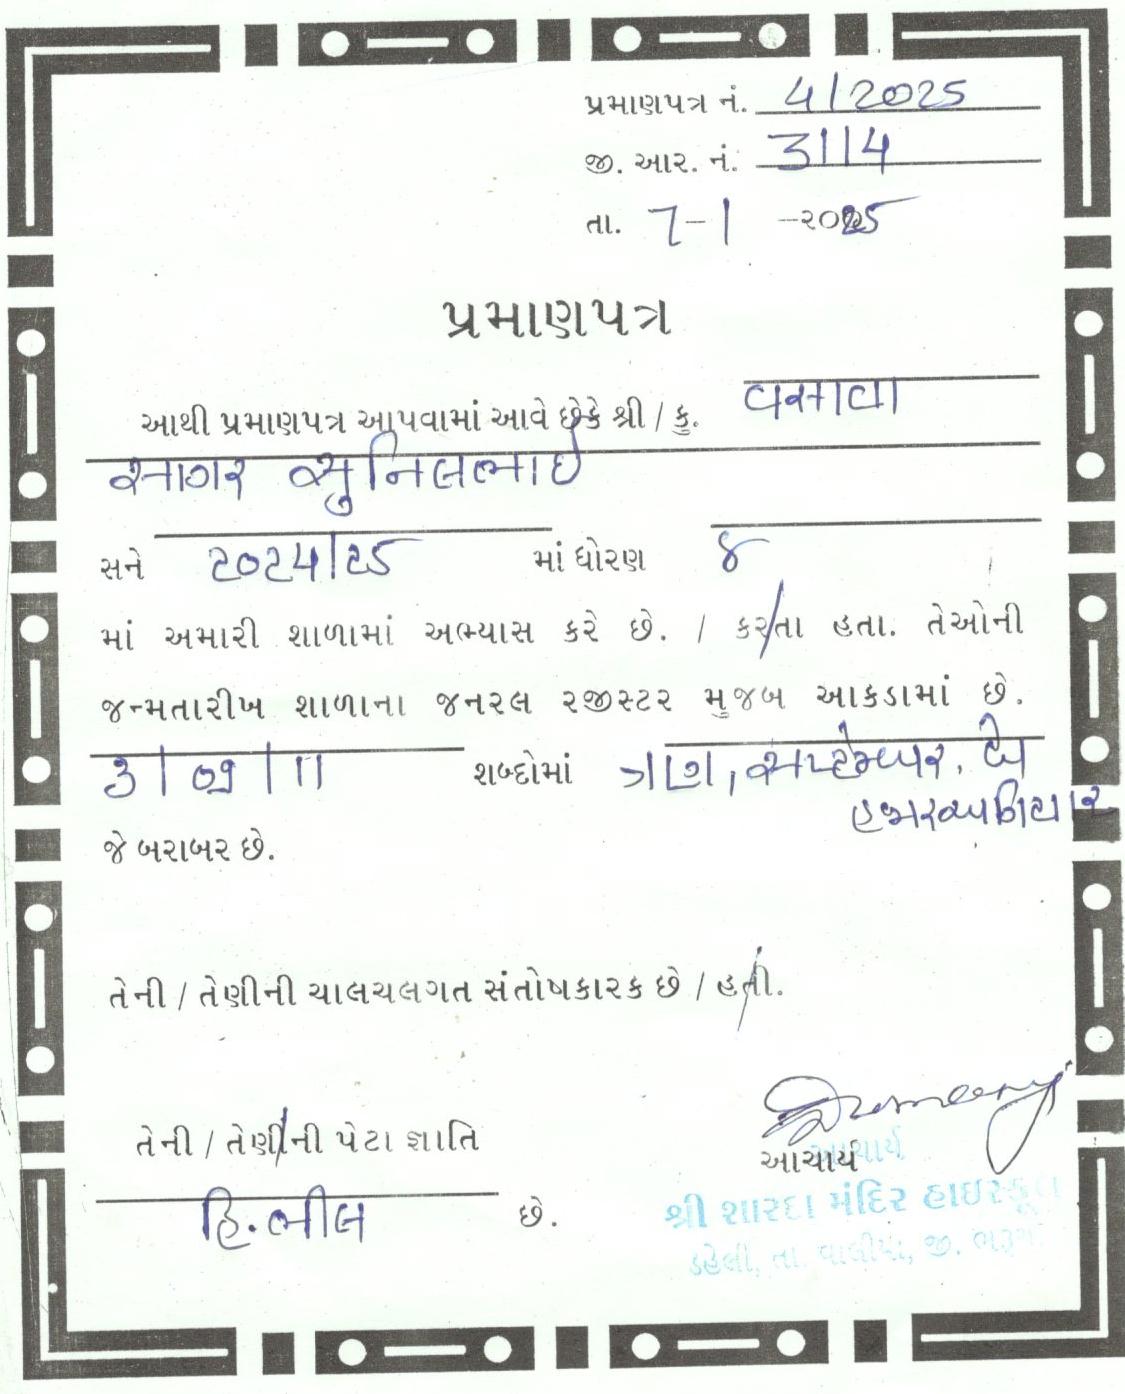 પ્રમાણપત્ર નં. 4/2025
જી. આર. નં. 3114
તા. 7-1 -૨૦25
પ્રમાણપત્ર
આથી પ્રમાણપત્ર આપવામાં આવે છેકે શ્રી / કુ. વસાવા
સાગર સુનિલભાઈ
સને ૨૦૨4/૨5 માં ધોરણ ૪
માં અમારી શાળામાં અભ્યાસ કરે છે. / કરતા હતા. તેઓની
જન્મતારીખ શાળાના જનરલ રજીસ્ટર મુજબ આકડામાં છે.
3/09/11 શબ્દોમાં ત્રણ, સપ્ટેમ્બર, બે
હજારઅગિયાર
જે બરાબર છે.
તેની / તેણીની ચાલચલગત સંતોષકારક છે / હતી.
તેની / તેણીની પેટા જ્ઞાતિ
હિ.ભીલ છે.
આચાર્ય
આચાર્ય
શ્રી શારદા મંદિર હાઇસ્કૂલ
ડહેલી, તા. વાલીયા, જી. ભરૂચ